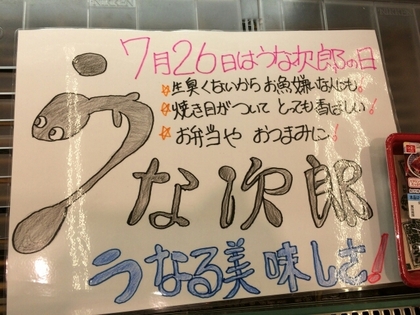 7月26日はうな次郎の日
☆生臭くないからお魚嫌いな人も!
☆焼き目がついてとっても香ばしい!
☆お弁当やおつまみに!
うな次郎
うなる美味しさ!